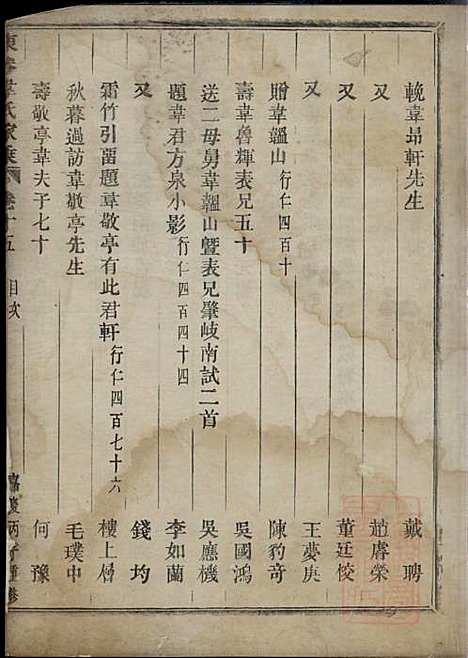 輓韋昻軒先生 戴聘
又 趙膺榮
又 董廷俊
又 王夢庚
贈韋韞山 行仁四百十 陳豹奇
壽韋魯輝表兄五十 吳國鴻
送二母舅韋韞山暨表兄肇岐南試二首 吳應機
題韋君方泉小影 行仁四百四十四 李如蘭
又 錢均
霜竹引菑題韋敬亭有此君軒 行仁四百七十六 樓上層
秋暮過訪韋敬亭先生 毛璞中
壽敬亭韋夫子七十 何豫
東 韋氏家乘 卷十五 目次 嘉慶丙子重修